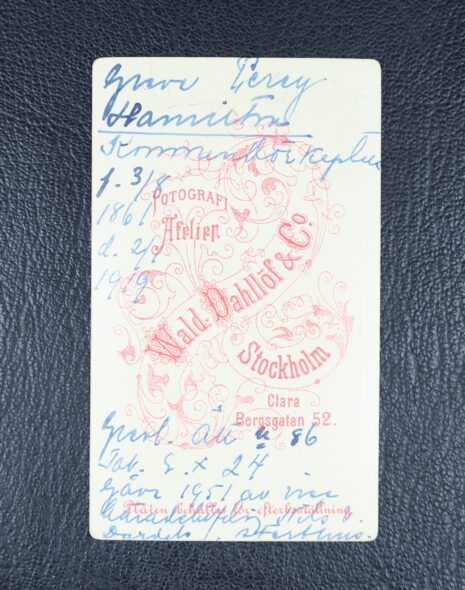 Greve Percy
Hamilton
Kommendörkapten
f. 3/8
1861
d. 2/1
1919
FOTOGRAFI
Atelier
Wald. Dahllöf & Co.
Stockholm
Clara
Bergsgatan 52.
Grevl. ätt n 86
Tab. 24
Gåva 1951 av
Nils v.
Dardel
Plåten behålles för efterbeställning